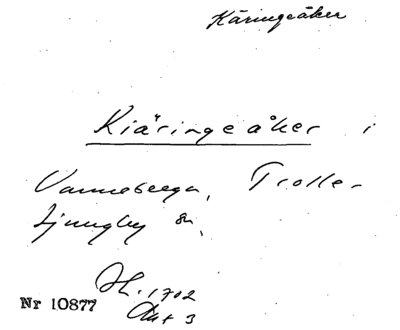 Käringeåker
Kiäringeåker i
Vanneberga, Trolle-
Ljungby sn.
Jb. 1702
Akt 3
Nr 10877